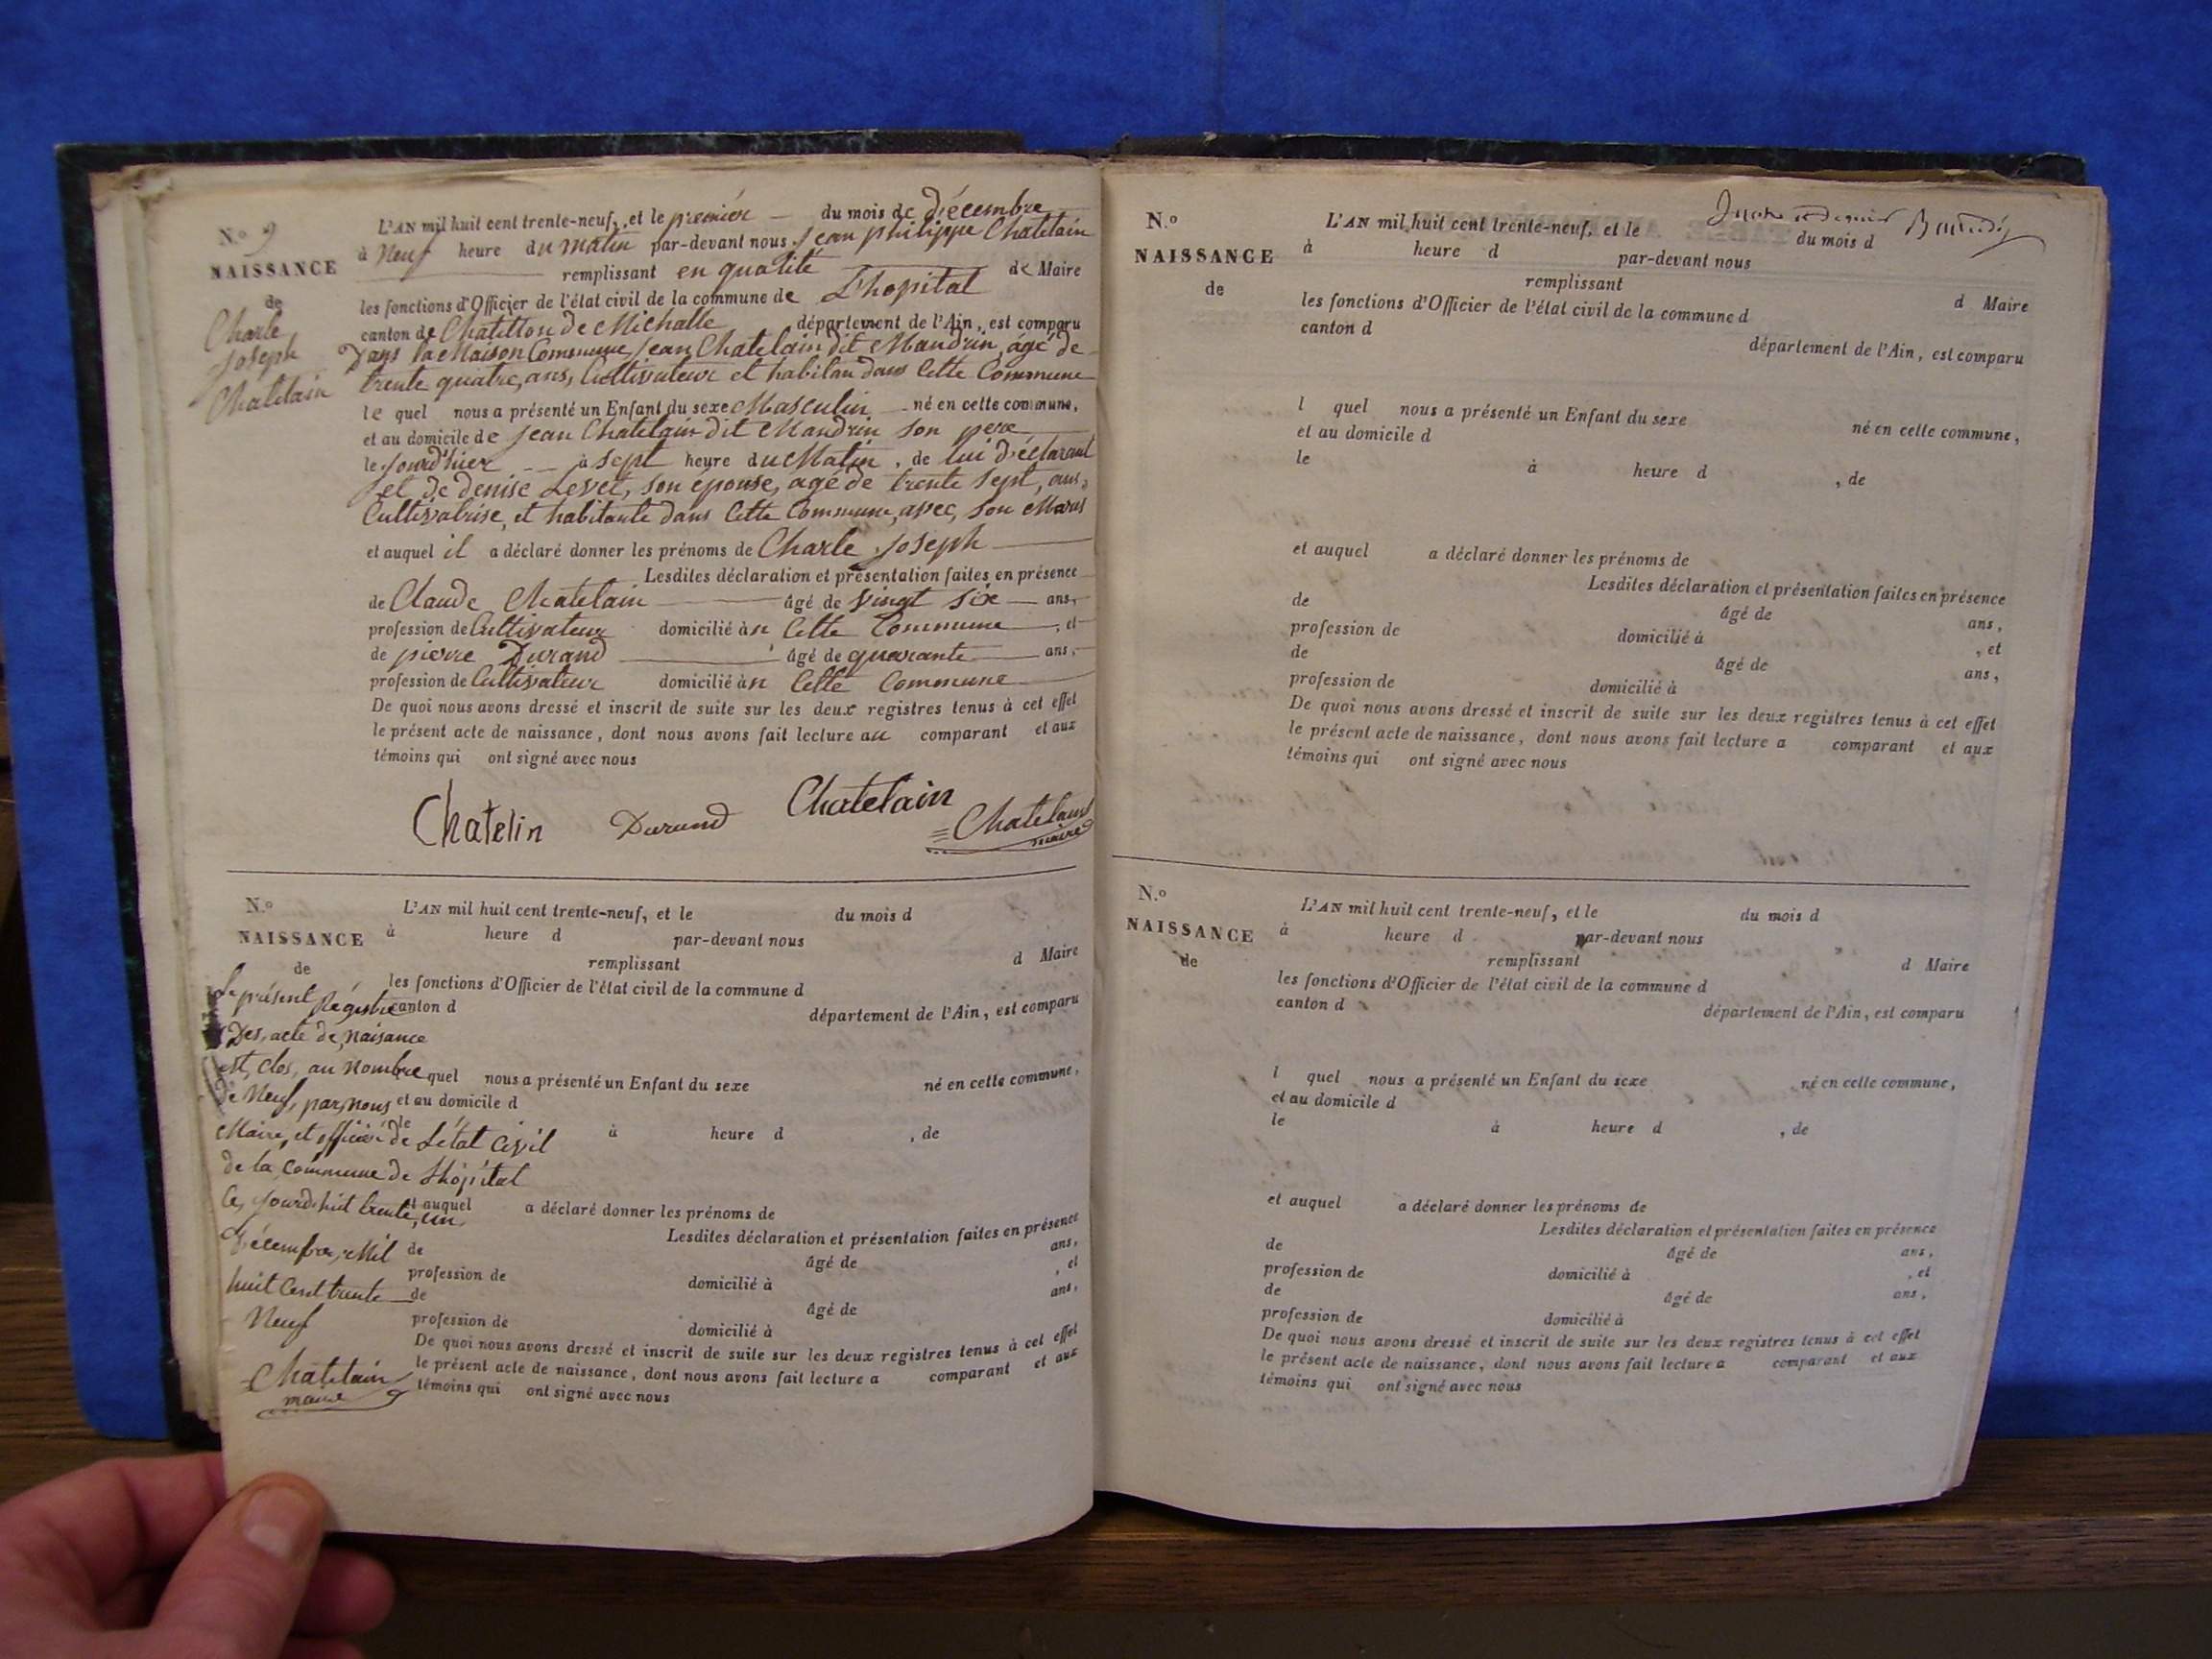 N.o 9
NAISSANCE
de
Charle
Joseph
Chatelain
L'AN mil huit cent trente-neuf, et le premier du mois de Décembre
à Neuf heure du matin par-devant nous Jean philippe Chatelain
remplissant en qualité de Maire
les fonctions d'Officier de l'état civil de la commune de L'hopital
canton de Chatillon de Michalle département de l'Ain, est comparu
Dans la Maison Commune, Jean Chatelain dit Mandrin, agé de
trente quatre, ans, Cultivateur et habitan dans Cette Commune
le quel nous a présenté un Enfant du sexe Masculin né en cette commune,
et au domicile de Jean Chatelain dit Mandrin Son pere
le jourd'hier à sept heure du Matin, de lui déclarant
et de denise Levet, son épouse, agé de trente sept, ans,
Cultivatrise, et habitante dans Cette Commune, avec, son Maris
et auquel il a déclaré donner les prénoms de Charle Joseph
Lesdites déclaration et présentation faites en présence
de Claude Chatelain âgé de vingt six ans,
profession de Cultivateur domicilié àn Cette Commune, et
de pierre Durand âgé de quarante ans,
profession de Cultivateur domicilié àn Cette Commune
De quoi nous avons dressé et inscrit de suite sur les deux registres tenus à cet effet
le présent acte de naissance, dont nous avons fait lecture au comparant et aux
témoins qui ont signé avec nous
Chatelin Durand Chatelain
Chatelain
maire
N.o
NAISSANCE
de
L'AN mil huit cent trente-neuf, et le du mois d
à heure d par-devant nous
remplissant d Maire
les fonctions d'Officier de l'état civil de la commune d
canton d département de l'Ain, est comparu
l quel nous a présenté un Enfant du sexe né en cette commune,
et au domicile d
le à heure d , de
et auquel a déclaré donner les prénoms de
Lesdites déclaration et présentation faites en présence
de âgé de ans,
profession de domicilié à , et
de âgé de ans,
profession de domicilié à
De quoi nous avons dressé et inscrit de suite sur les deux registres tenus à cet effet
le présent acte de naissance, dont nous avons fait lecture a comparant et aux
témoins qui ont signé avec nous
Le présent Régistre
Des, acte de, naisance
est, clos, au nombre
de Neuf, par, nous
Maire, et officié de L'état Civil
de la Commune de L'hopital
Ce, jourd'huit trente, un,
Décembre, Mil
huit Cent trente
Neuf
Chatelain
maire
N.o
NAISSANCE
de
L'AN mil huit cent trente-neuf, et le du mois d
à heure d par-devant nous
remplissant d Maire
les fonctions d'Officier de l'état civil de la commune d
canton d département de l'Ain, est comparu
l quel nous a présenté un Enfant du sexe né en cette commune,
et au domicile d
le à heure d , de
et auquel a déclaré donner les prénoms de
Lesdites déclaration et présentation faites en présence
de âgé de ans,
profession de domicilié à , et
de âgé de ans,
profession de domicilié à
De quoi nous avons dressé et inscrit de suite sur les deux registres tenus à cet effet
le présent acte de naissance, dont nous avons fait lecture a comparant et aux
témoins qui ont signé avec nous
N.o
NAISSANCE
de
L'AN mil huit cent trente-neuf, et le du mois d
à heure d par-devant nous
remplissant d Maire
les fonctions d'Officier de l'état civil de la commune d
canton d département de l'Ain, est comparu
l quel nous a présenté un Enfant du sexe né en cette commune,
et au domicile d
le à heure d , de
et auquel a déclaré donner les prénoms de
Lesdites déclaration et présentation faites en présence
de âgé de ans,
profession de domicilié à , et
de âgé de ans,
profession de domicilié à
De quoi nous avons dressé et inscrit de suite sur les deux registres tenus à cet effet
le présent acte de naissance, dont nous avons fait lecture a comparant et aux
témoins qui ont signé avec nous